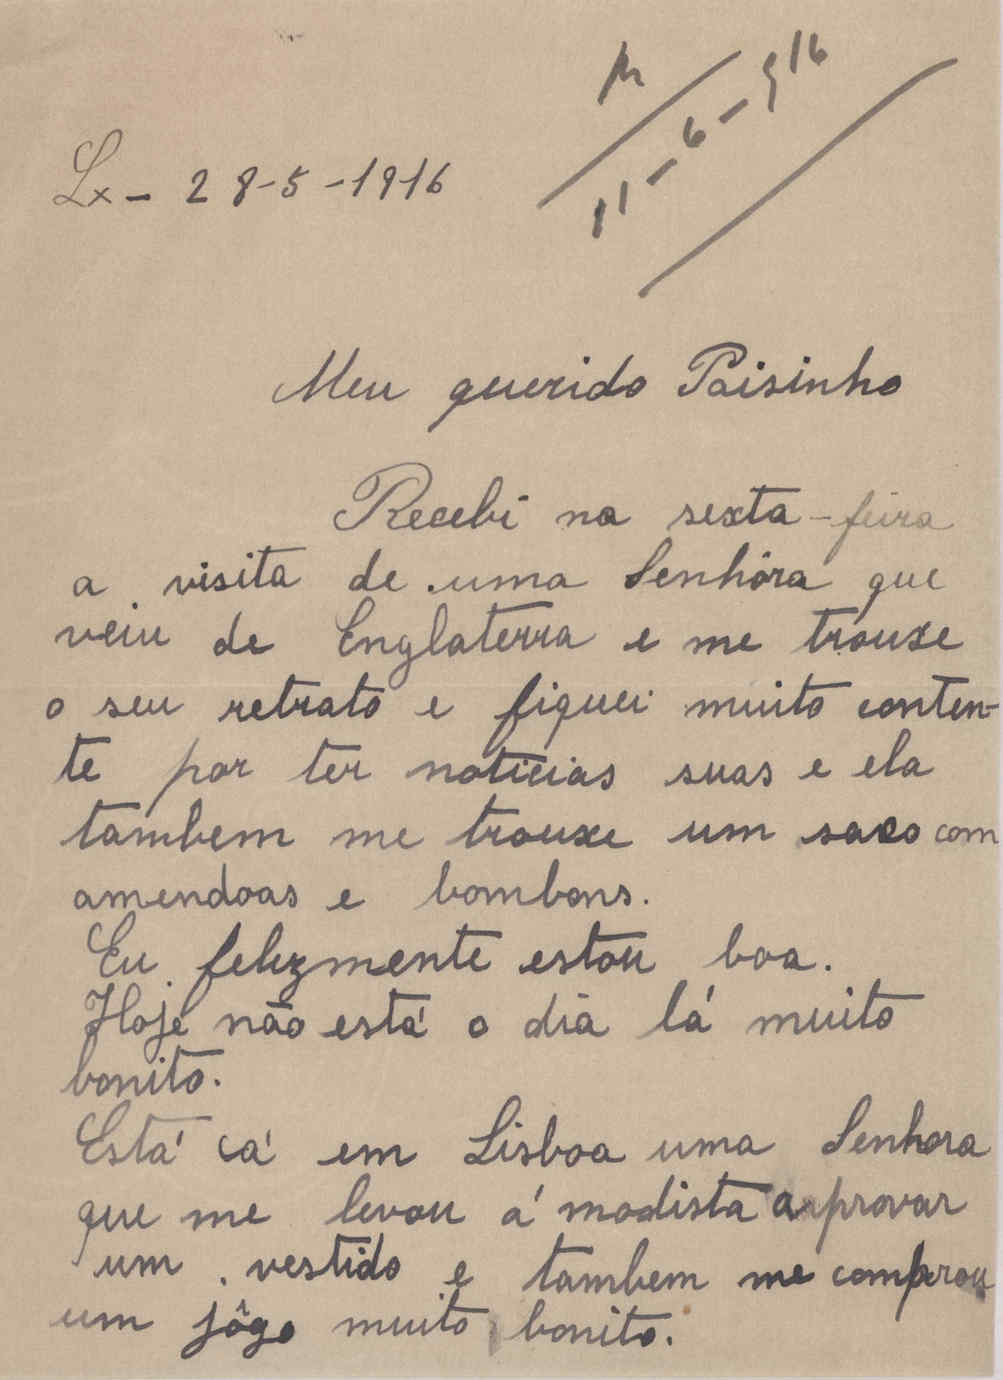 Lx- 28-5-1916
11-6-916
Meu querido Paisinho
Recebi na sexta-feira
a visita de uma Senhôra que
veiu de Englaterra e me trouxe
o seu retrato e fiquei muito conten-
te por ter noticias suas e ela
tambem me trouxe um saco com
amendoas e bombons.
Eu felizmente estou boa.
Hoje não está o dia lá muito
bonito.
Está cá em Lisboa uma Senhora
que me levou á modista a provar
um vestido e tambem me comprou
um jôgo muito bonito.